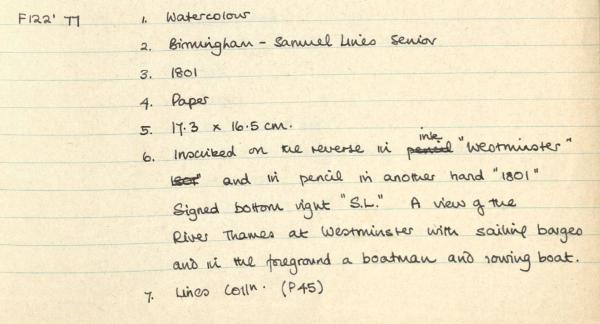 F122' 77 1. Watercolour
2. Birmingham - Samuel Lines Senior
3. 1801
4. Paper
5. 17.3 x 16.5 cm.
6. Inscribed on the reverse in pencil ink "Westminster"
1801" and in pencil in another hand "1801"
Signed bottom right "S.L." A view of the
River Thames at Westminster with sailing barges
and in the foreground a boatman and rowing boat.
7. Lines Colln. (P45)